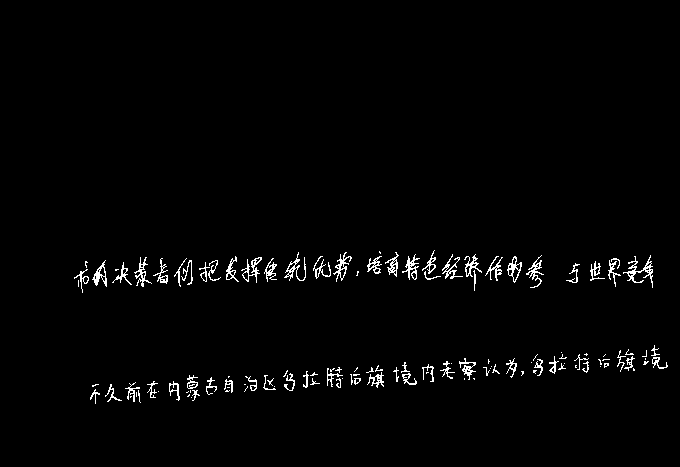 市的决策者们把发挥传统优势,培育特色经济作为参与世界竞争
不久前在内蒙古自治区乌拉特后旗境内考察认为,乌拉特后旗境